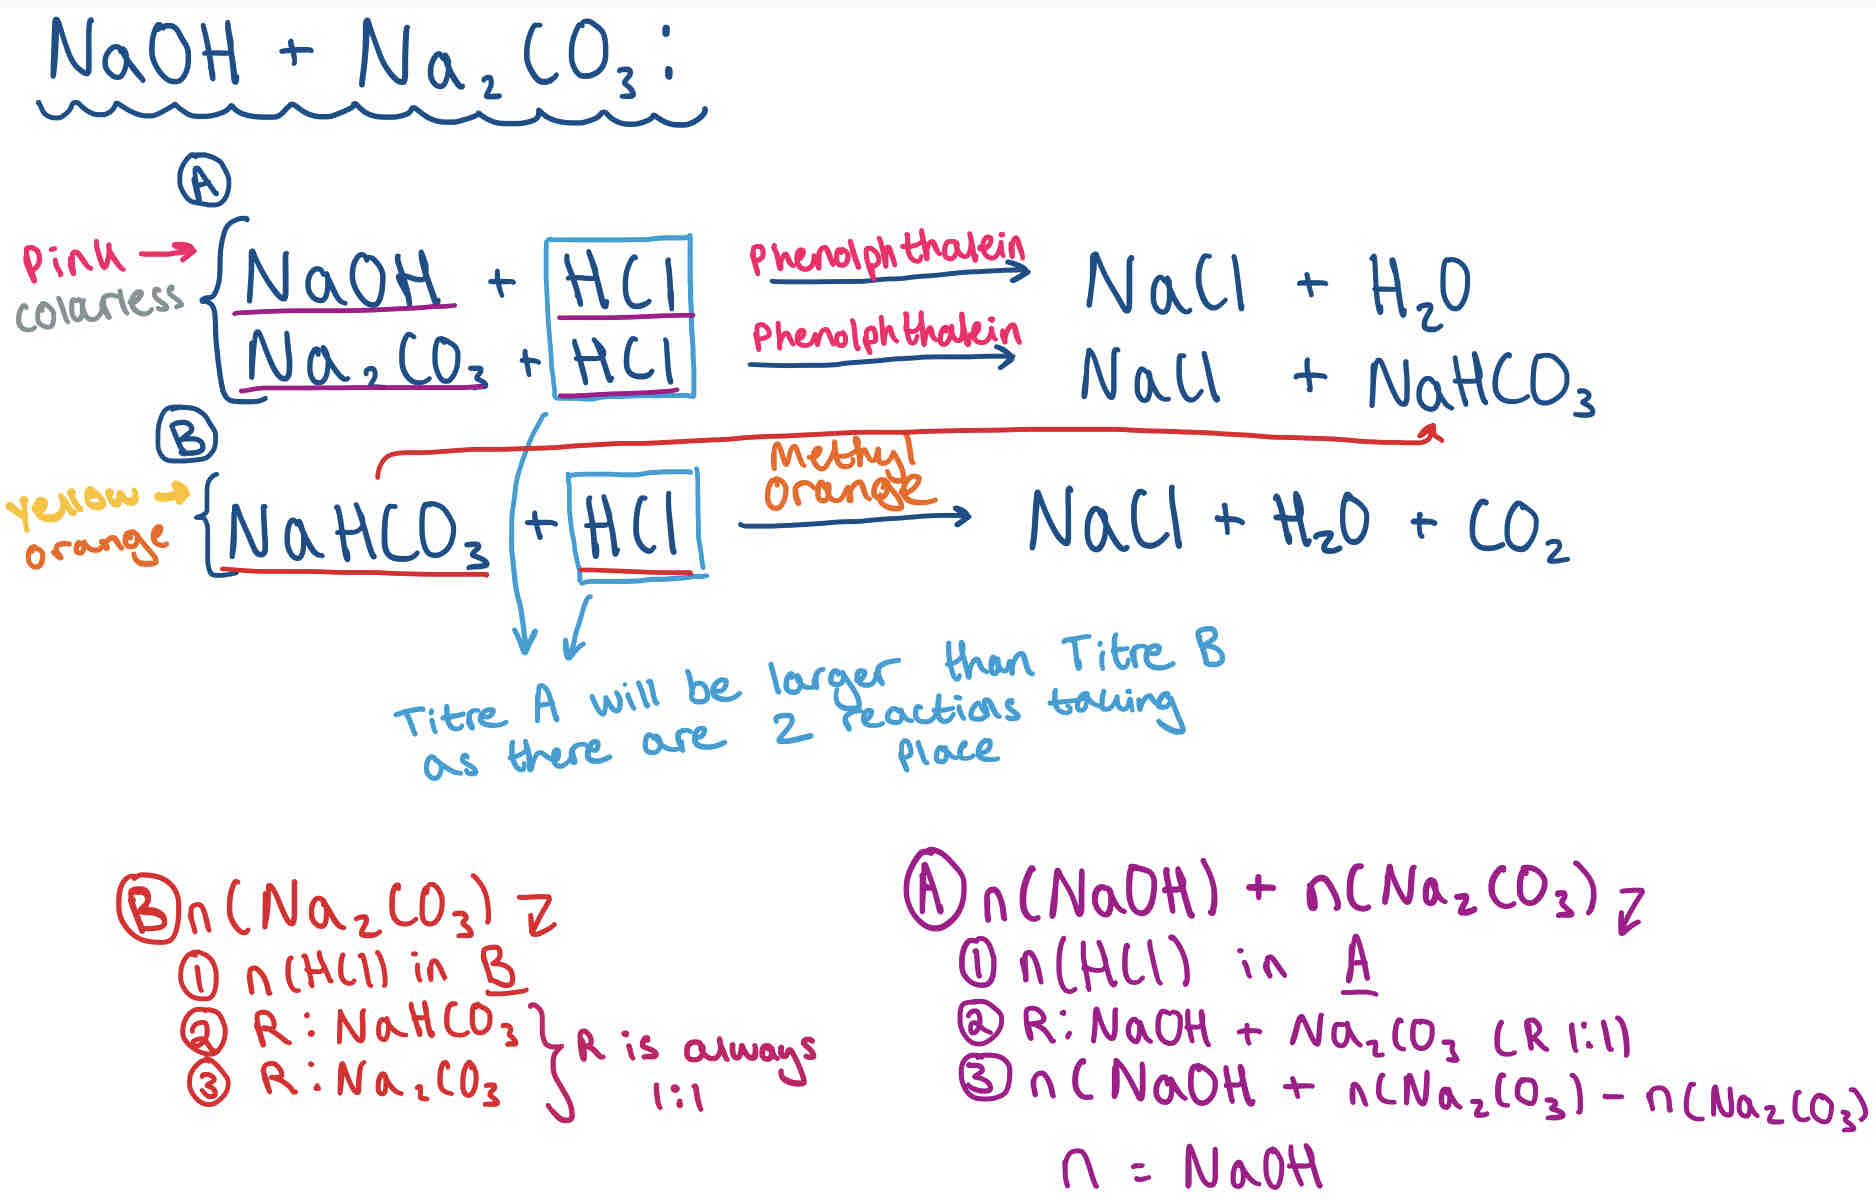 NaOH + Na₂CO₃:
A
Pink → NaOH + HCl Phenolphthalein → NaCl + H₂O
colarless Na₂CO₃ + HCl Phenolphthalein → NaCl + NaHCO₃
B
Yellow → NaHCO₃ + HCl Methyl orange → NaCl + H₂O + CO₂
orange
Titre A will be larger than Titre B
as there are 2 reactions taking
place
B n(Na₂CO₃)
1 n(HCl) in B
2 R: NaHCO₃
3 R: Na₂CO₃
R is always
1:1
A n(NaOH) + n(Na₂CO₃)
1 n(HCl) in A
2 R: NaOH + Na₂CO₃ (R 1:1)
3 n(NaOH + n(Na₂CO₃) - n(Na₂CO₃)
n = NaOH